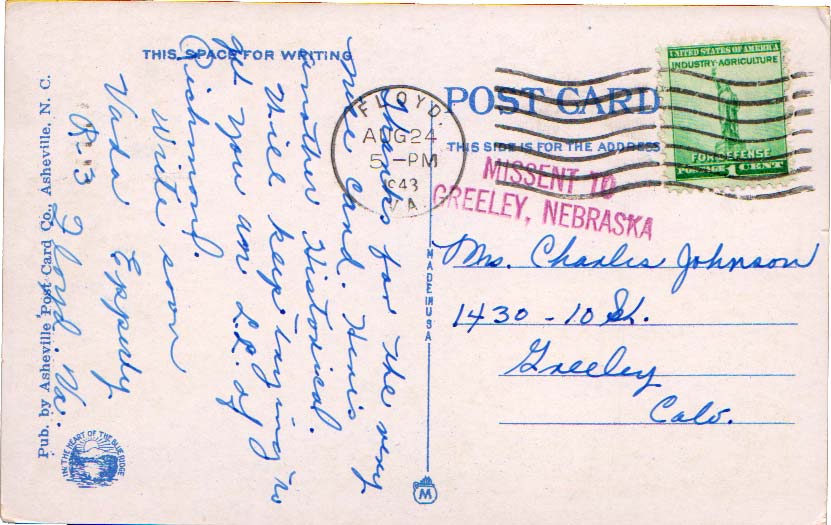 THIS SPACE FOR WRITING
Thanks for the very
nice card. Here's
another Historical.
Will keep trying to
get you an L.L. of
Richmond.
Write soon
Vada Epperly
R-3 Floyd. Va.
Pub. by Asheville Post Card Co., Asheville, N. C.
IN THE HEART OF THE BLUE RIDGE
MADE IN USA
M
POST CARD
THIS SIDE IS FOR THE ADDRESS
FLOYD.
AUG 24
5-PM
1943
VA.
UNITED STATES OF AMERICA
INDUSTRY-AGRICULTURE
FOR DEFENSE
POSTAGE 1 CENT
MISSENT TO
GREELEY, NEBRASKA
Mrs. Charles Johnson
1430 - 10 St.
Greeley
Colo.